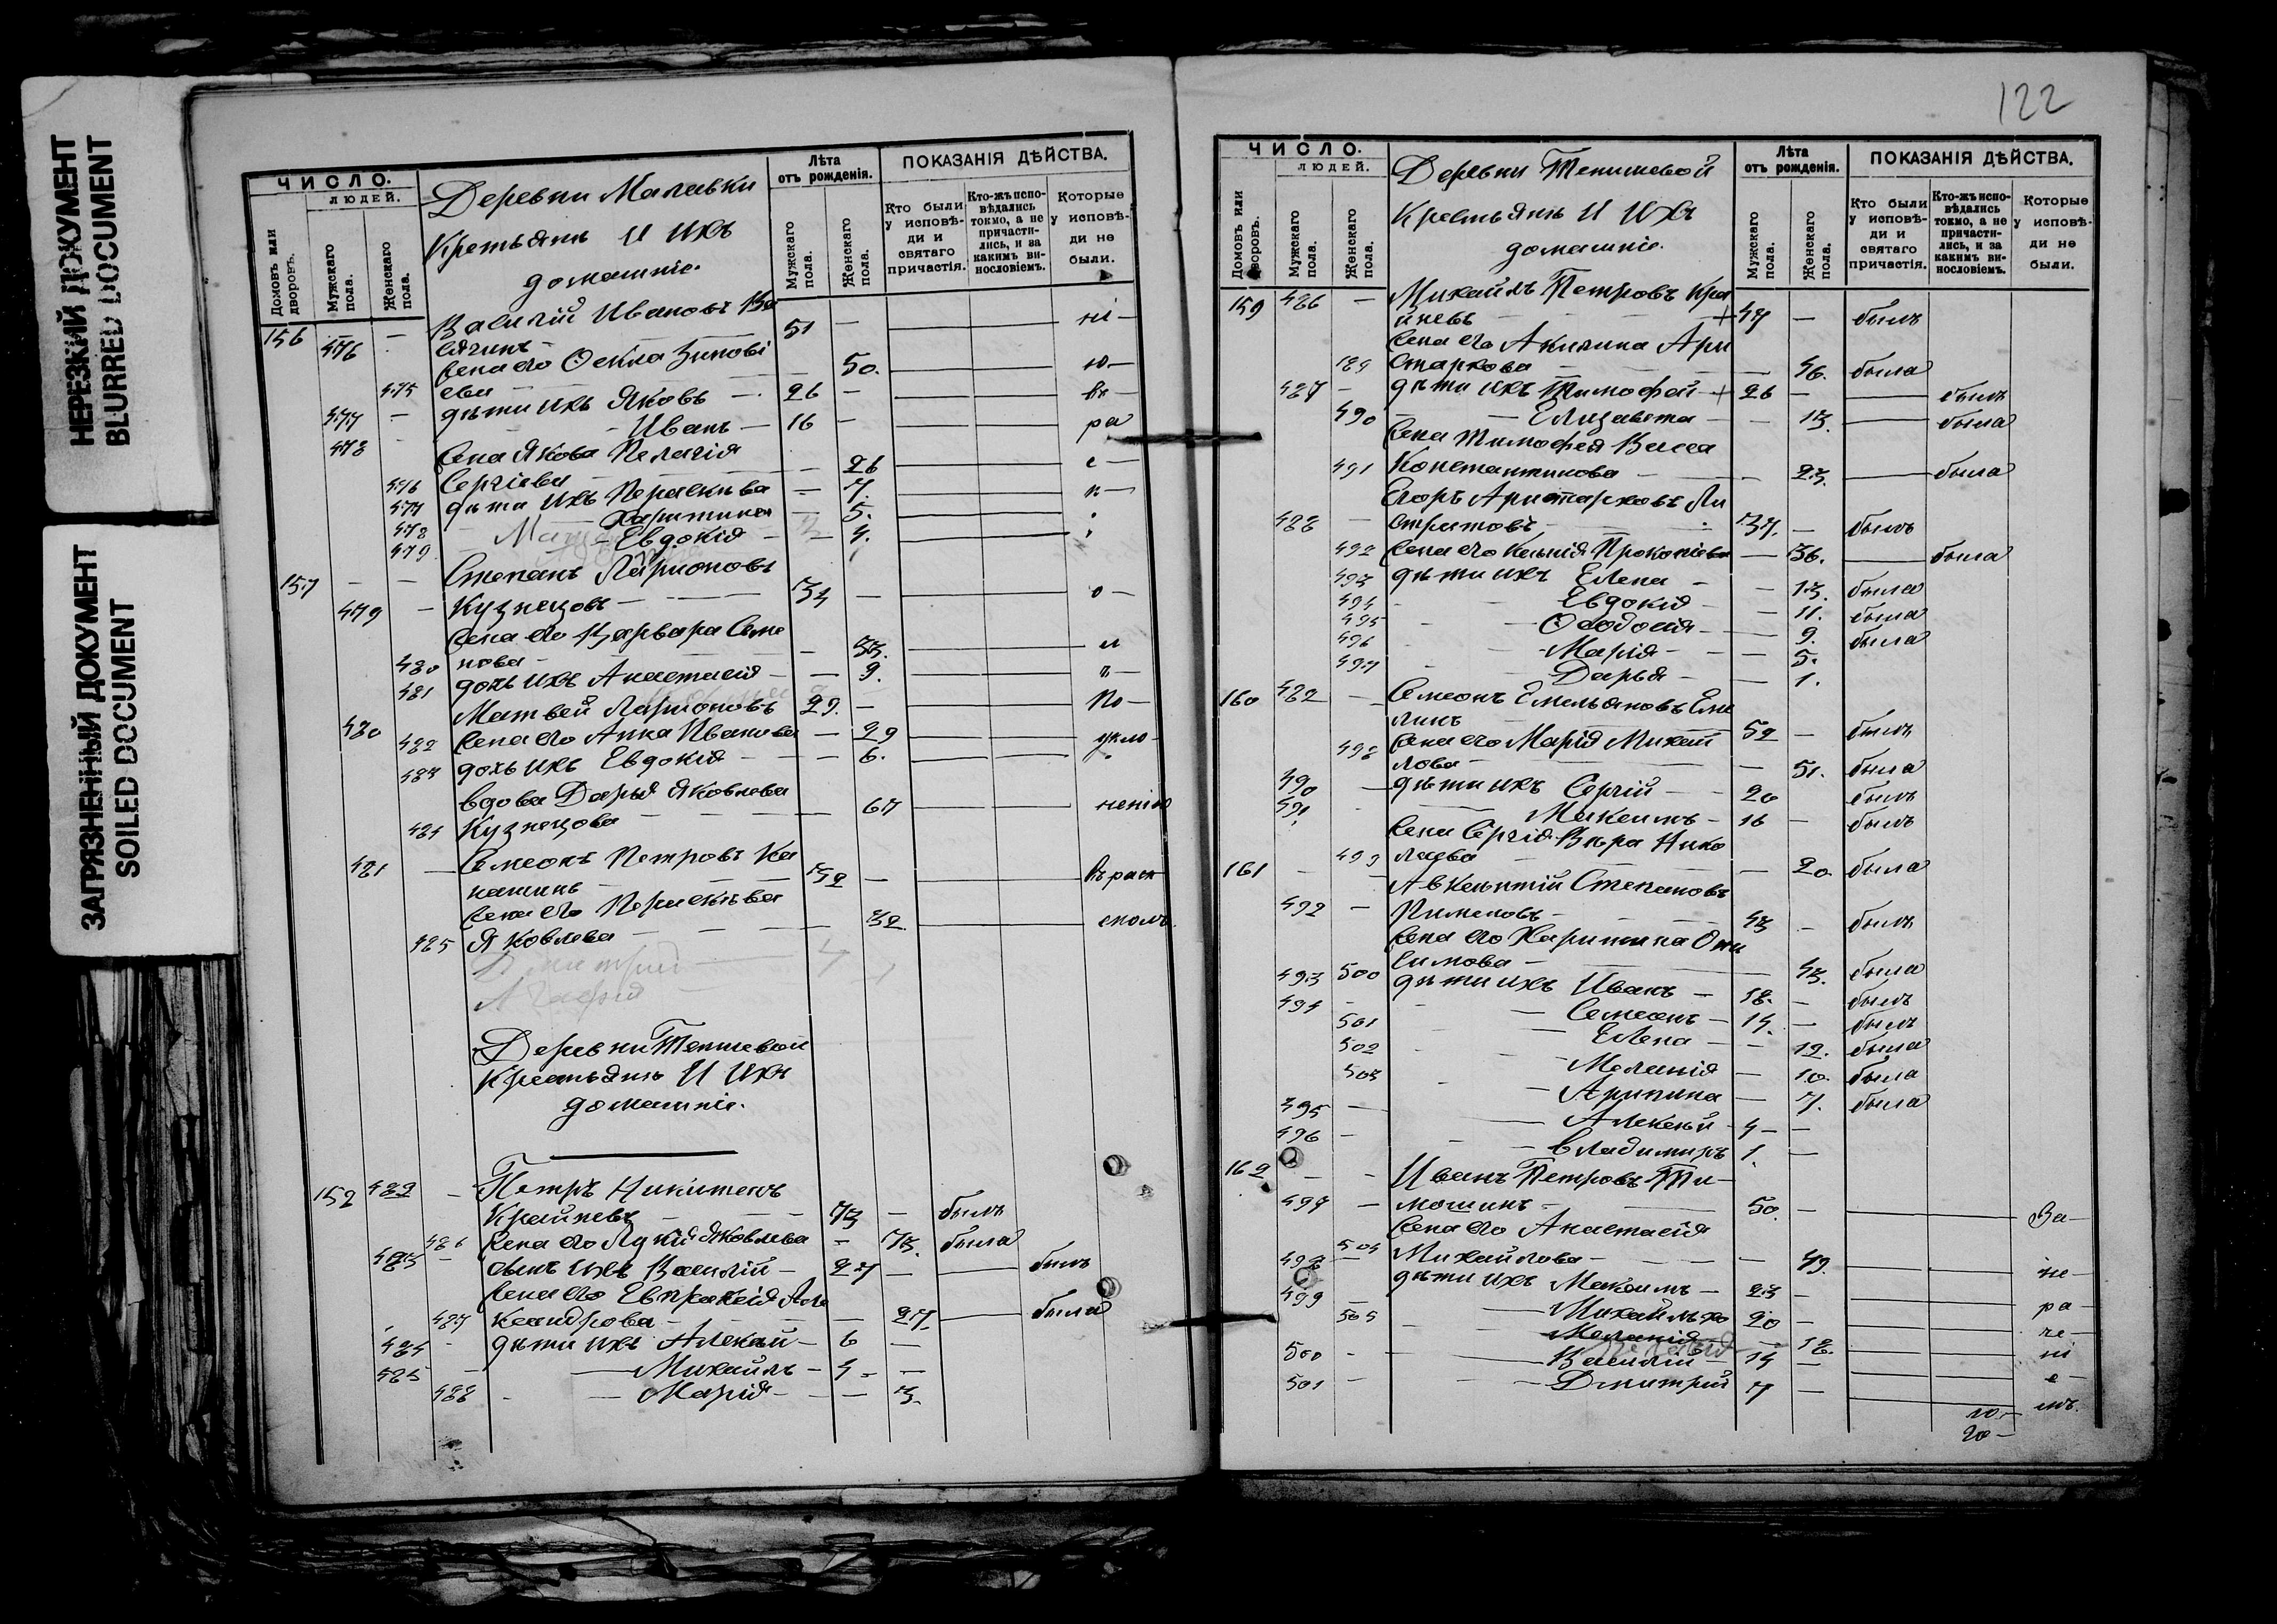 НЕРЕЗКИЙ ДОКУМЕНТ
BLURRED DOCUMENT
ЗАГРЯЗНЕННЫЙ ДОКУМЕНТ
SOILED DOCUMENT
ЧИСЛО.
ЛЮДЕЙ.
Домовъ или дворовъ.
Мужскаго пола.
Женскаго пола.
Деревни Малавки
Крестьянъ И ихъ
домашніе.
Лѣта
отъ рожденія.
Мужскаго пола.
Женскаго пола.
ПОКАЗАНІЯ ДѢЙСТВА.
Кто были у исповѣди и святаго причастія.
Кто-жъ исповѣдались токмо, а не причастились, и за какимъ винословіемъ.
Которые у исповѣди не были.
156 476 — Василій Ивановъ 51 —
жена его Ѳекла Зиновi 50.
475 ева
477 — дѣти ихъ Яковъ — 26 —
478 Иванъ — 16 — ра
жена Якова Пелагія
476 Сергіева 26
477 дѣти ихъ Параскева — 7.
478 Харитина 5.
479 Евдокія — 4.
157 — — Степанъ Ларіоновъ
479 — Кузнецовъ — 34 — о —
жена его Варвара Семе
480 нова — 33.
481 дочь ихъ Анастасія — 9.
480 Матвей Ларіоновъ 29. — По —
482 жена его Анна Иванова — 29 укло
483 дочь ихъ Евдокія — 6.
вдова Дарья Яковлева
484 Кузнецова — 67 неніе
481 — Семеонъ Петровъ Ка
шинъ 32 — въ раск
жена его Параскева
485 Яковлева — 32. сколъ
Дмитрий
Деревни Тепишевой
Крестьянъ И ихъ
домашніе.
482 — Петръ Никитинъ
Крайневъ 73 — былъ
486 жена его Лукія Яковлева — 73. была
483 — сынъ ихъ Василій — 27 — былъ
жена его Евпраксія Але
487 ксандрова — 27. была
484 — дѣти ихъ Алексѣй — 6 —
485 — Михаилъ — 4 —
488 — Марія — 3.
122
ЧИСЛО.
ЛЮДЕЙ.
Домовъ или дворовъ.
Мужскаго пола.
Женскаго пола.
Деревни Тепишевой
Крестьянъ И ихъ
домашніе.
Лѣта
отъ рожденія.
Мужскаго пола.
Женскаго пола.
ПОКАЗАНІЯ ДѢЙСТВА.
Кто были у исповѣди и святаго причастія.
Кто-жъ исповѣдались токмо, а не причастились, и за какимъ винословіемъ.
Которые у исповѣди не были.
159 486 — Михаилъ Петровъ Кра
йневъ + 47 — былъ
жена его Акилина Ари
489 стархова — 46. была
487 — дѣти ихъ Тимофей + 26 — былъ
490 — Елизавета — 13. была
жена Тимофея Васса
491 Константинова — 23. была
Егоръ Аристарховъ
488 — 37. — былъ
492 жена его Ксенія Прокопіева — 36. была
493 дѣти ихъ Елена — 13. была
494 Евдокія — 11. была
495 Ѳеодосія — 9. была
496 Марія — 5.
497 Дарья — 1.
160 489 — Семеонъ Емельяновъ Еме
линъ 52 — былъ
498 жена его Марія Михай
лова — 51. была
490 — дѣти ихъ Сергій — 20 былъ
491 Максимъ — 16 — былъ
жена Сергія Вѣра Нико
499 лаева — 20. была
161 Авксентій Степановъ
492 — Пименовъ — 43 — былъ
жена его Харитина Они
симова — 43. была
493 500 дѣти ихъ Иванъ — 18. — былъ
494 — Семеонъ — 14. — былъ
501 Елена — 12. была
502 Меланія — 10. была
503 Агрипина — 7. была
495 — Алексѣй — 4 —
496 — Владимиръ 1. —
162 — — Иванъ Петровъ Ти —
497 — мошинъ — 50. — За —
жена его Анастасія
504 Михайлова — 49. не —
498 — дѣти ихъ Максимъ — 23 — ра —
499 — Михаилъ 20 — че —
505 Меланія — 18. ні
500 — Василій 14 — е —
501 — Дмитрій 7 — мъ.
10 —
20 —